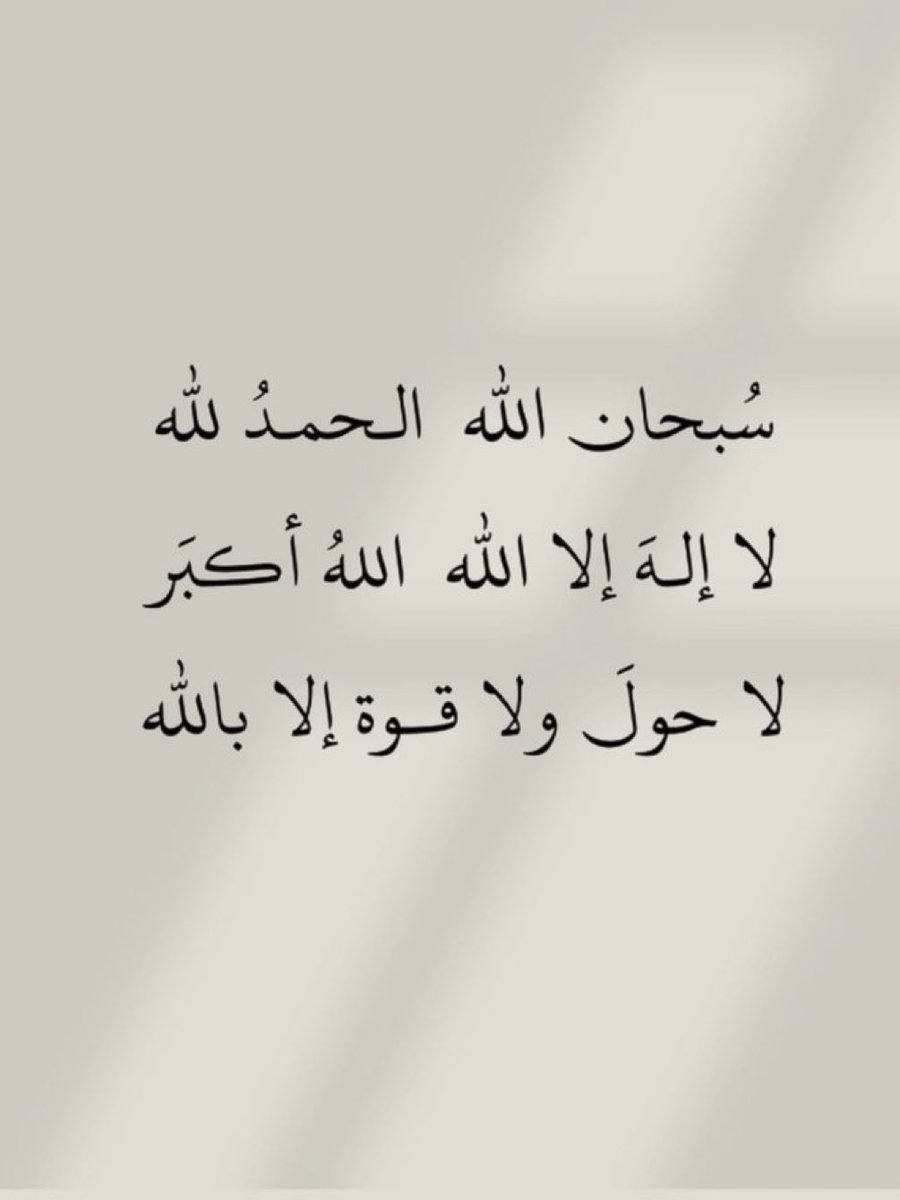 سُبحان الله الـحمـدُ لله
لا إلـهَ إلا الله اللهُ أكبَر
لا حولَ ولا قـوة إلا بالله